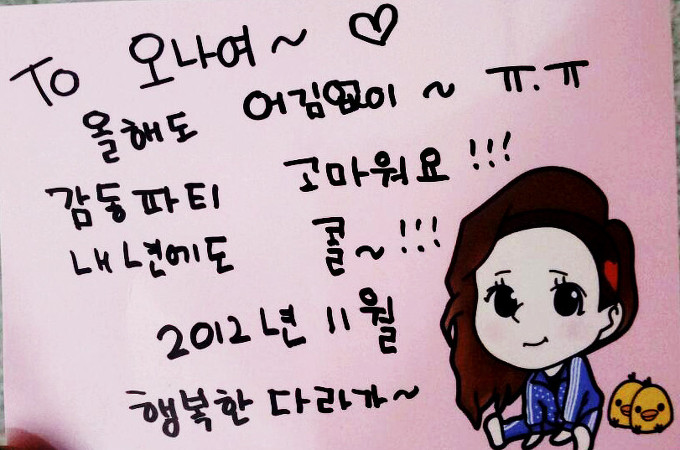 To 오나여~ ♡
올해도 어김없이 ~ ㅠ.ㅠ
감동파티 고마워요 !!!
내년에도 콜~ !!!
2012년 11월
행복한 다라가~